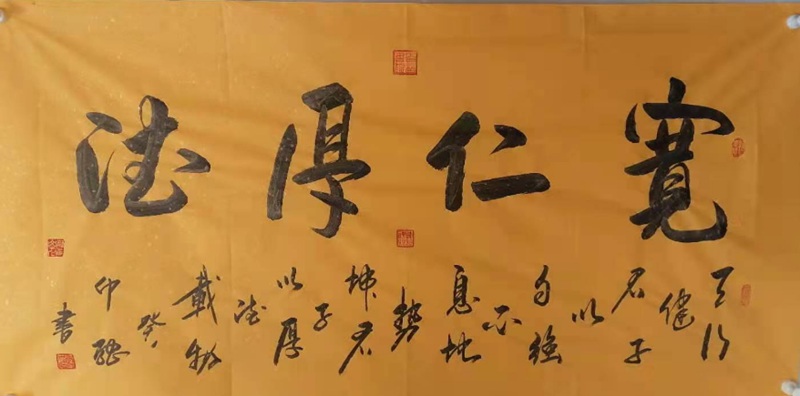 寬仁厚德
天行
健
君子
以
自強
不
息地
勢
坤君
子
以厚
德
載物
癸
卯
書